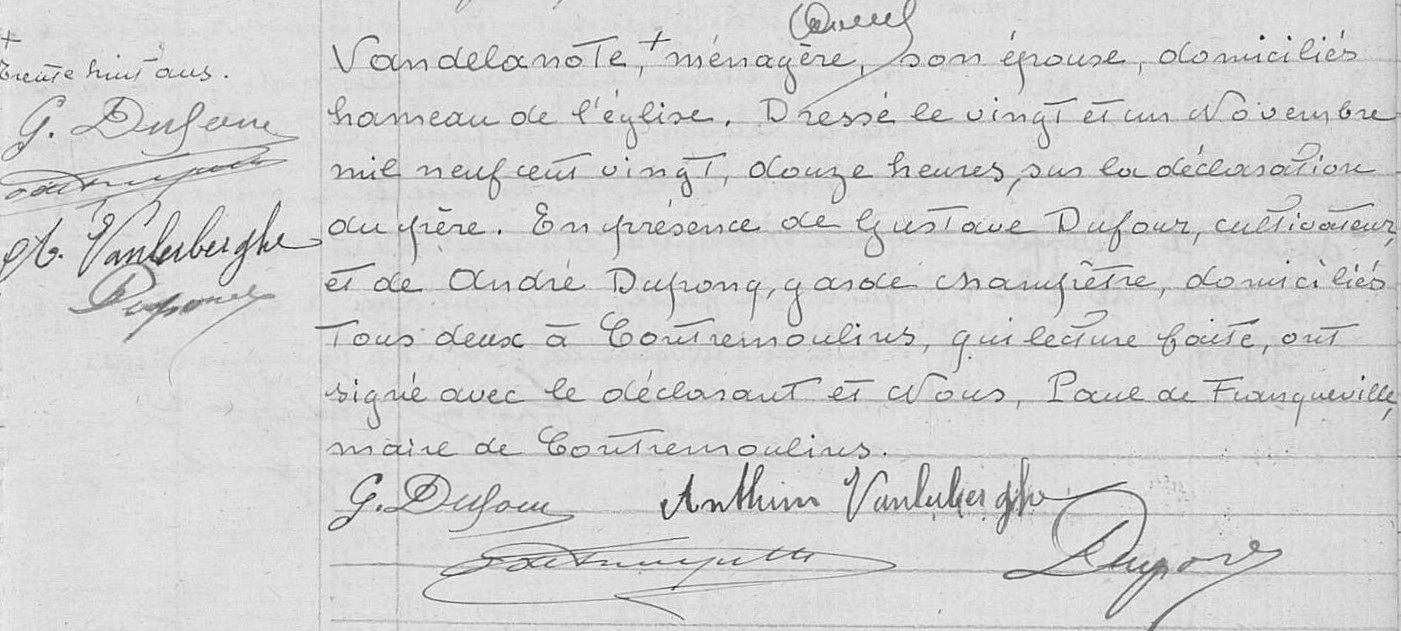 +
trente huit ans.
G. Dufour
A. Vanlerberghe
Dupong
Vandelanote, + ménagère, son épouse, domiciliés
hameau de l'église. Dressé le vingt et un Novembre
mil neuf cent vingt, douze heures, sur la déclaration
du père. En présence de Gustave Dufour, cultivateur,
et de André Dupong, garde champêtre, domiciliés
tous deux à Contremoulins, qui lecture faite, ont
signé avec le déclarant et Nous, Paul de Franqueville,
maire de Contremoulins.
G. Dufour Anthim Vanlerberghe
Dupong